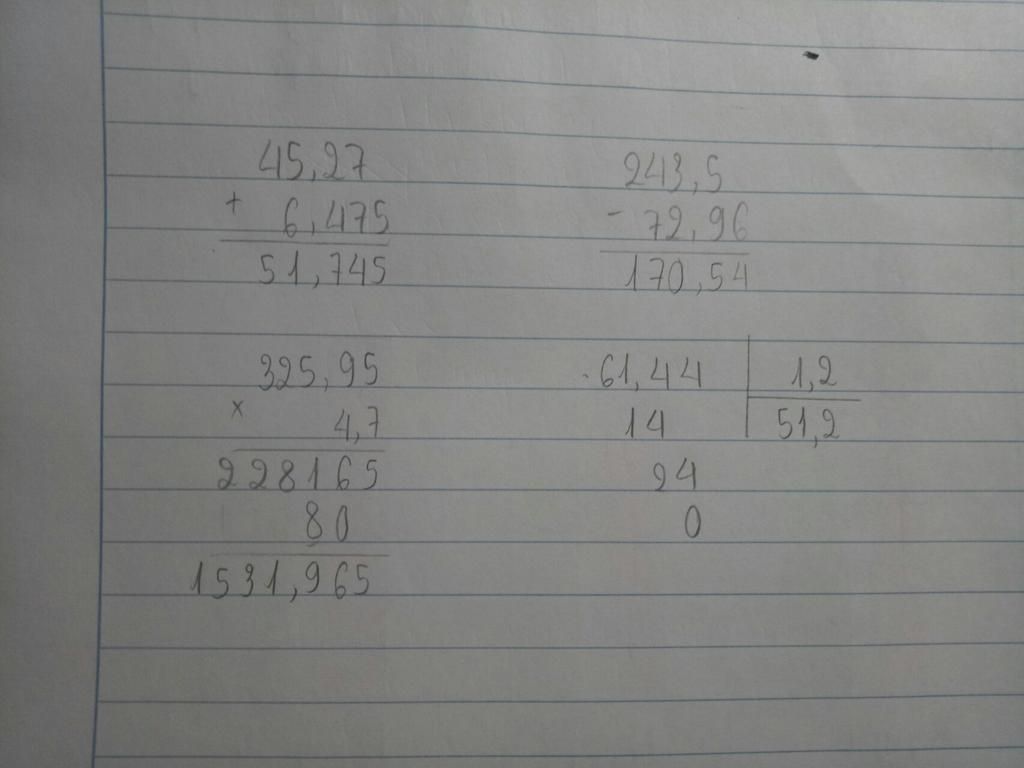 45,27
+ 6,475
51,745
243,5
- 72,96
170,54
325,95
x 4,7
228165
80
1531,965
61,44 | 1,2
14 51,2
24
0